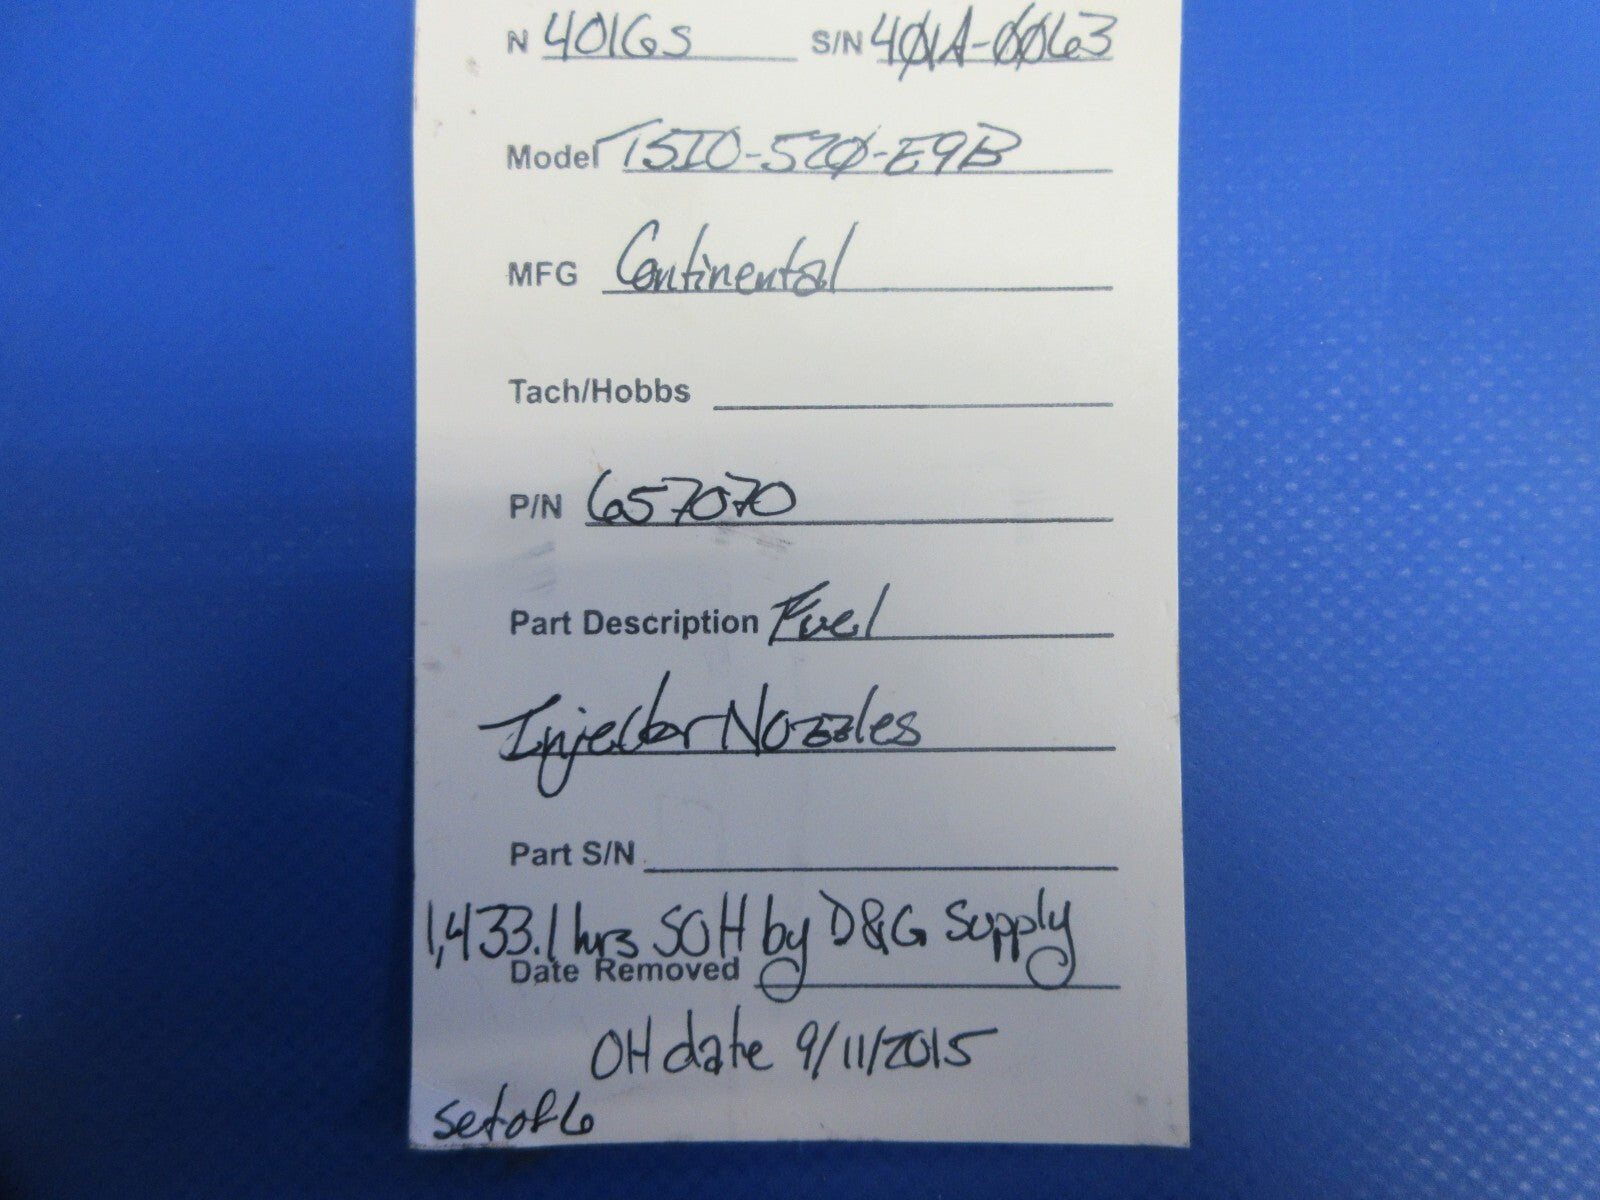 N 401GS S/N 401A-0063
Model TSIO-520-E9B
MFG Continental
Tach/Hobbs
P/N 657070
Part Description Fuel
Injector Nozzles
Part S/N
1,433.1 hrs SOH by D&G Supply
Date Removed
OH date 9/11/2015
set of 6